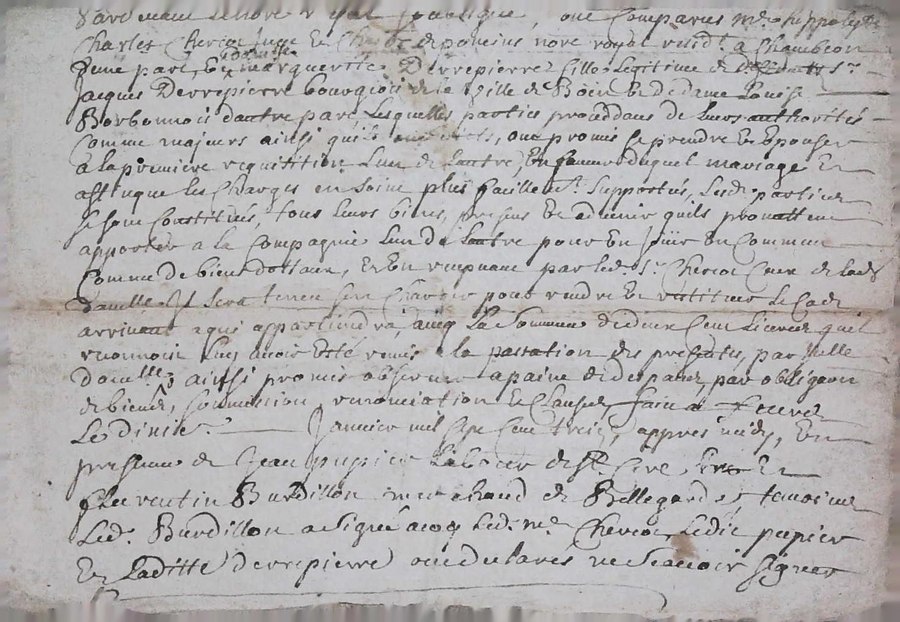 Pardevant le no.re royal publique, ont Comparus m.e hyppolyte
Charles Chercot juge et de poncins no.re royal resid.t a Chambeon
d'une part, et marguerite Derrepierre fille Legitime de S.r
Jacques Derrepierre bourgeois de la Ville de Boën et de dame Louise
Borbonnois dautre part Lesquelles parties proceddans de leurs authorités
comme majeurs ainsi quils ont dits, ont promis se prendre et Epouser
a la premiere requitition Lun de Lautre, En faveur duquel mariage et
affinque les Charges en soint plus facillem.t Supportés, Lesd. parties
se sont Constitués, tous leurs biens, presens et advenir quils promettent
apporter a la Compagnie Lun de Lautre pour En jouir En Commun
Comme de biens dottaux, et En recepvant par led. S.r Chercot Ceux de lad.
dam.lle Il sera tenu pour rendre et restituer le Cas
arrivant a qui appartiendra, ainsy La Somme de deux Cent Livres quil
reconnoit Luy avoir Esté remis a la passation des presentes, par delle
dam.lle, ainsi promis observer a paine de despans, par obligaon
de biens, soumission, renonciation et Clauses, fait a feurs
Le dixie. Janvier mil sept Cent treize, appres midy, En
presence de Jean pupier Laboureur de St. Cire, et de
fleurentin Burdillon marchand de Bellegarde, temoins
Led. Burdillon a signé avecq led. m.e Chercot, Ledit pupier
et Laditte derrepierre ont declarés ne scavoir signer